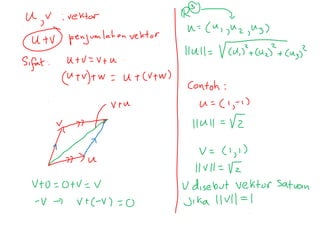 u, v : vektor
u+v penjumlahan vektor
Sifat : u+v = v+u
(u+v)+w = u+(v+w)
v+u
v
u
v+0 = 0+v = v
-v → v+(-v) = 0
R³
u = (u₁, u₂, u₃)
||u|| = √(u₁)²+(u₂)²+(u₃)²
Contoh :
u = (1,-1)
||u|| = √2
v = (1,1)
||v|| = √2
v disebut vektor satuan
jika ||v|| = 1